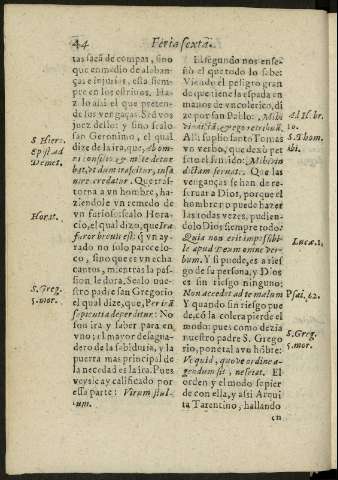 44
Feria sexta.
tas sacã de compas, sino
que en medio de alaban-
ças è injurias, està siem-
pre en los estriuos. Ha-
zlo assi el que preten-
de vergaças. Sed vos
juez dellos: y sino sealo
san Geronimo, el qual
dize de la ira, que,
varse credatur. Que tras-
torna a vn hombre, ha-
ziendole vn remedo de
vn furioso: sealo Hora-
cio, el qual dize, que Ira
furor breuis est: q̃ vn ay-
rado no solo parece lo-
co, sino que er vn echa
cantos, mientras la pas-
sion le dora. Sealo nues-
tro Padre san Gregorio
el qual dize, que, Per irã
sapientia deperditur: No
son ira y saber para en
vno; el mayor desagua-
dero de la sabiduria, y la
puerta mas principal de
la necedad es la ira. Pues
veysle ay calificado por
esta parte: Virum stul-
tum.
S. Hiero.
epist. ad
Demet.
Horat.
S. Greg.
5. mor.
El segundo nos ense-
ñò el que todo lo sabe:
Vie ndo el peligro gran
de que tiene la espada en
manos de vn colerico, di
ze por san Pablo: Mihi
vindictã, & ego retribuã.
Alli suple santo Tomas
vn verbo, que dexò be-
sso el summo: Mihi vin
dictam seruate. Que las
vergaças se han de re-
seruar a Dios, porque el
hombre no puede hazer
las todas vezes, pudien-
dolo Dios siempre todo:
Quia non erit impossibi-
le apud Deum omne ver-
bum. Y si puede, es a ries-
go de su persona, y Dios
es sin riesgo ninguno:
Non accedet ad te malum
Y quando sin riesgo pue
de, cõ la colera pierde el
modo: pues como dezia
nuestro padre S. Grego
rio, ponetal a vn hõbre:
Ve quid, quo ve ordine a-
gendum sit, nesciat. El
orden y el modo se pier
de con ella, y assi Arqui
ta Tarentino, hallando
en
Ad Hebr.
10.
S. Thom.
ibi.
Lucæ.1.
Psal. 62.
S. Greg
5. mor.